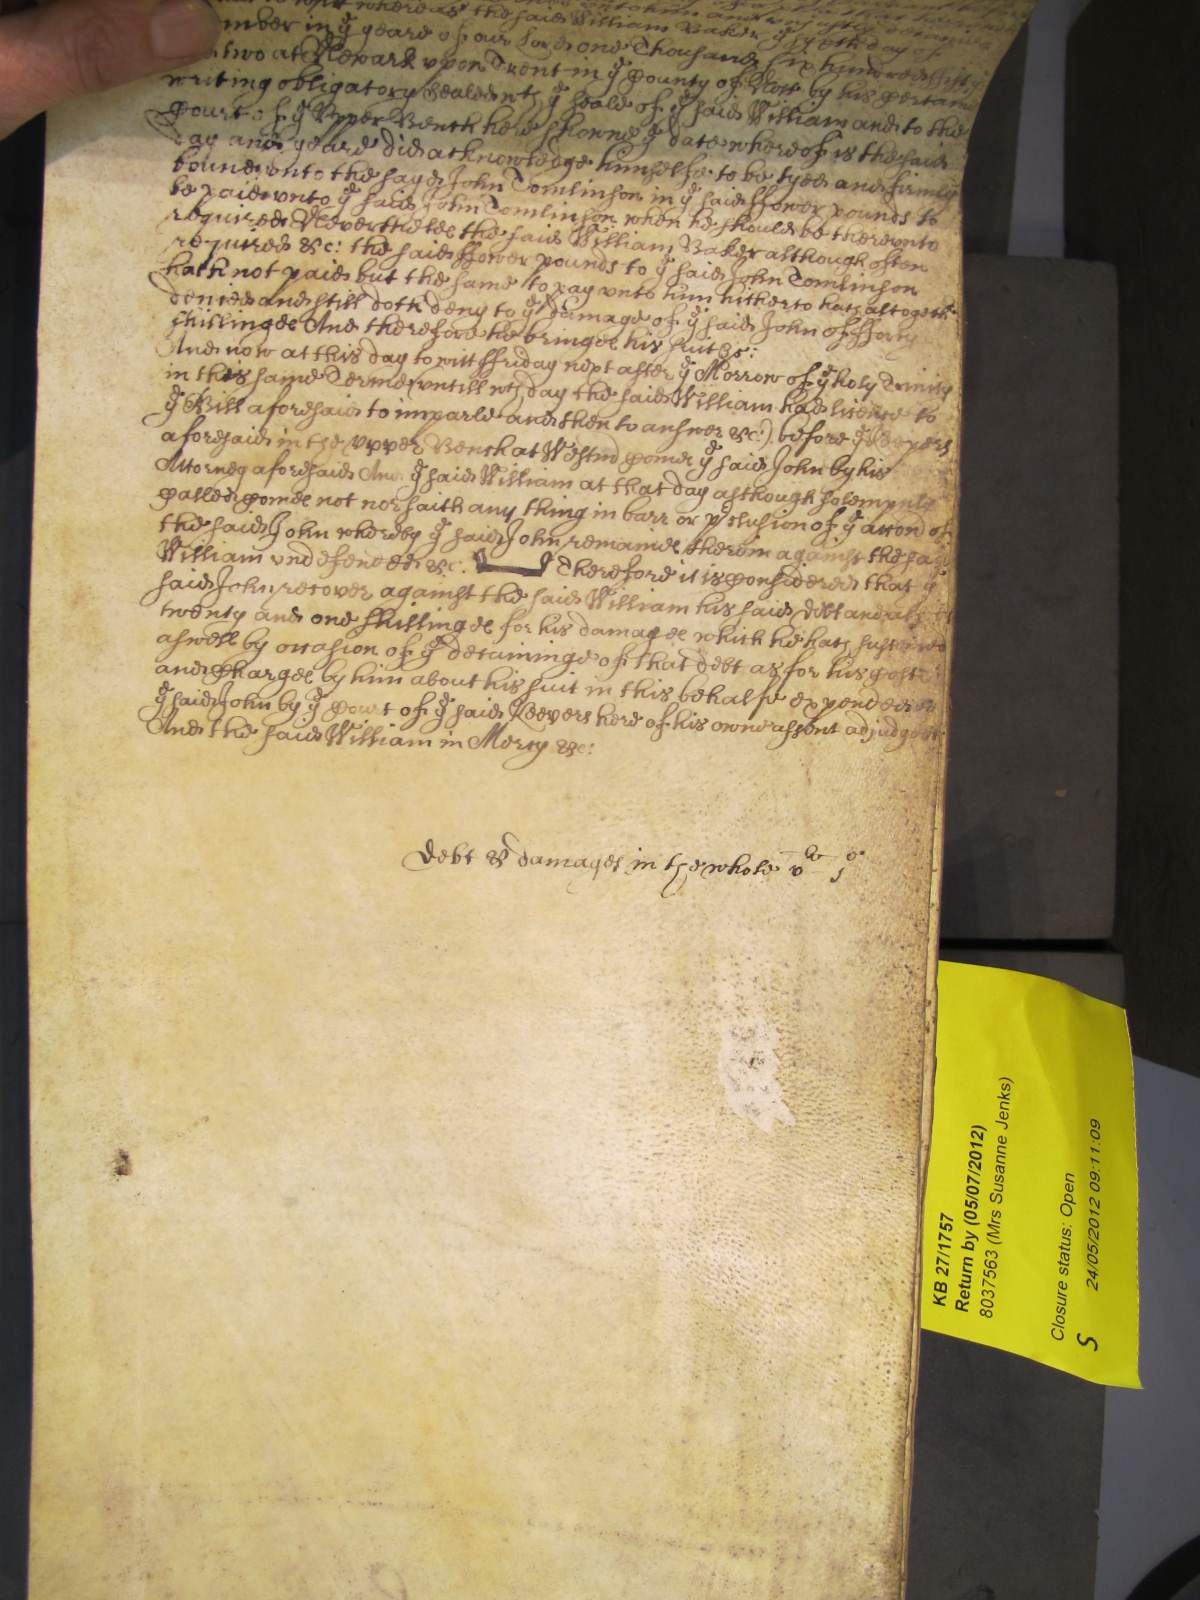 to witt whereas the said William Baker ye sixth day of
mber in ye yeare of our Lord one Thousand six hundred fifty
two at Newark upon Trent in ye County of Nott by his certaine
writing obligatory sealed wth ye seale of ye said William and to the
Court of ye Upper Bench here showne ye date whereof is the said
day and yeare did acknowledge himselfe to be tyed and firmly
bound unto the sayd John Tomlinson in ye said ffower pounds to
be paid unto ye said John Tomlinson when he should be thereunto
required Neverthelee the said William Baker although often
required &c: the said ffower pounds to ye said John Tomlinson
hath not paid but the same to pay unto him hitherto hath altogethr
denied and still doth deny to ye damage of ye said John of fforty
shillinges And therefore he bringes his suit &c:
And now at this day to witt ffriday next after ye Morrow of ye holy Trinity
in this same Terme (untill wch day the said William had licence to
ye Bill aforesaid to imparle and then to answer &c:) before ye Keepers
aforesaid in the upper Bench at Westmr comes ye said John by his
Attorney aforesaid And ye said William at that day although solempnly
called comes not nor saith any thing in barr or pclusion of ye accon of
the said John whereby ye said John remaines therein against the said
William undefended &c: Therefore it is considered that ye
said John recover against the said William his said debt and also
twenty and one shillinges for his damages which he hath susteined
aswell by occasion of ye detaininge of that debt as for his costs
and Charges by him about his suit in this behalfe expended to
ye said John by ye Court of ye said Keepers here of his owne assent adjudged
And the said William in Mercy &c:
Debt & damages in the whole v li j s
KB 27/1757
Return by (05/07/2012)
8037563 (Mrs Susanne Jenks)
Closure status: Open
S 24/05/2012 09:11:09